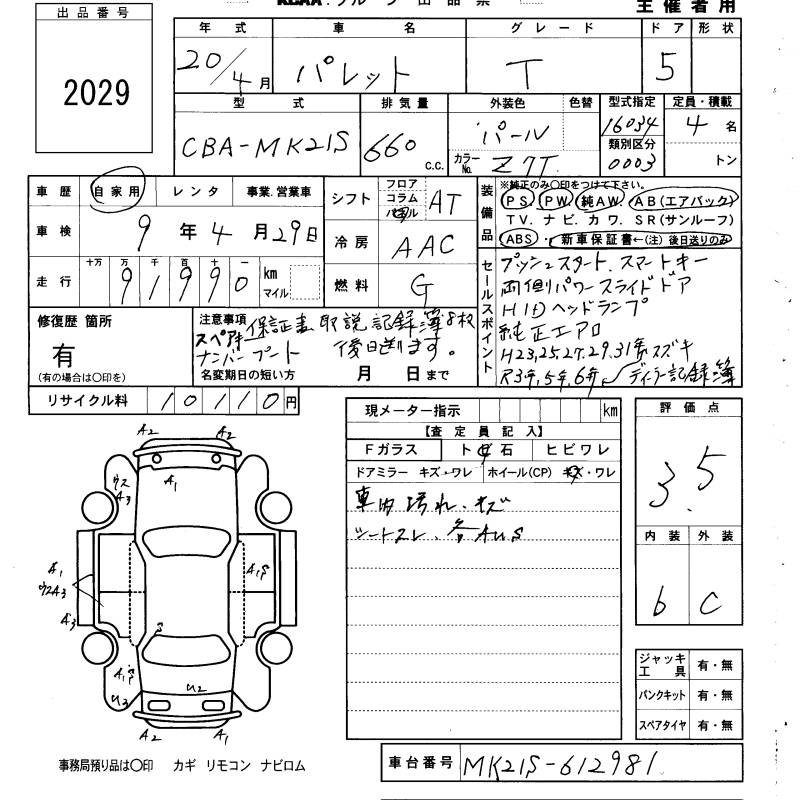 出品番号
2029
主催者用
年 式 車 名 グレード ドア 形状
20/4月 パレット T 5
型 式 排気量 外装色 色替 型式指定 定員・積載
CBA-MK21S 660 c.c. パール カラーNo. Z7T 16034 4名
類別区分 0003 トン
車歴 自家用 レンタ 事業.営業車
車検 9年4月29日
走行 十万 万 千 百 十 一 km マイル
91990
シフト フロア コラム AT
冷房 AAC
燃料 G
装備品 ※純正のみ○印をつけて下さい。
PS PW 純AW AB(エアバック)
TV. ナビ. カワ. SR(サンルーフ)
ABS・新車保証書←(注)後日送りのみ
セールスポイント
プッシュスタート.スマートキー
両側パワースライドドア
HIDヘッドランプ
純正エアロ
H23,25,27,29,31年スズキ
R3年,5年,6年 ディーラー記録簿
修復歴 箇所
有
(有の場合は○印を)
注意事項 保証書 取説 記録簿8枚
スペアキー
ナンバープレート 後日送ります。
名変期日の短い方 月 日まで
リサイクル料 10110円
現メーター指示 km
【査定員記入】
Fガラス トビ石 ヒビワレ
ドアミラー キズ・ワレ ホイール(CP) キズ・ワレ
車内汚れ、キズ
シートスレ、各AUS
評価点
3.5
内装 外装
6 C
ジャッキ工具 有・無
パンクキット 有・無
スペアタイヤ 有・無
A2 A2
A1
ウス
A3
A1
ウスA3
A3
A1S
S
A1S
U2 U2
A2 A1
事務局預り品は○印 カギ リモコン ナビロム
車台番号 MK21S-612981